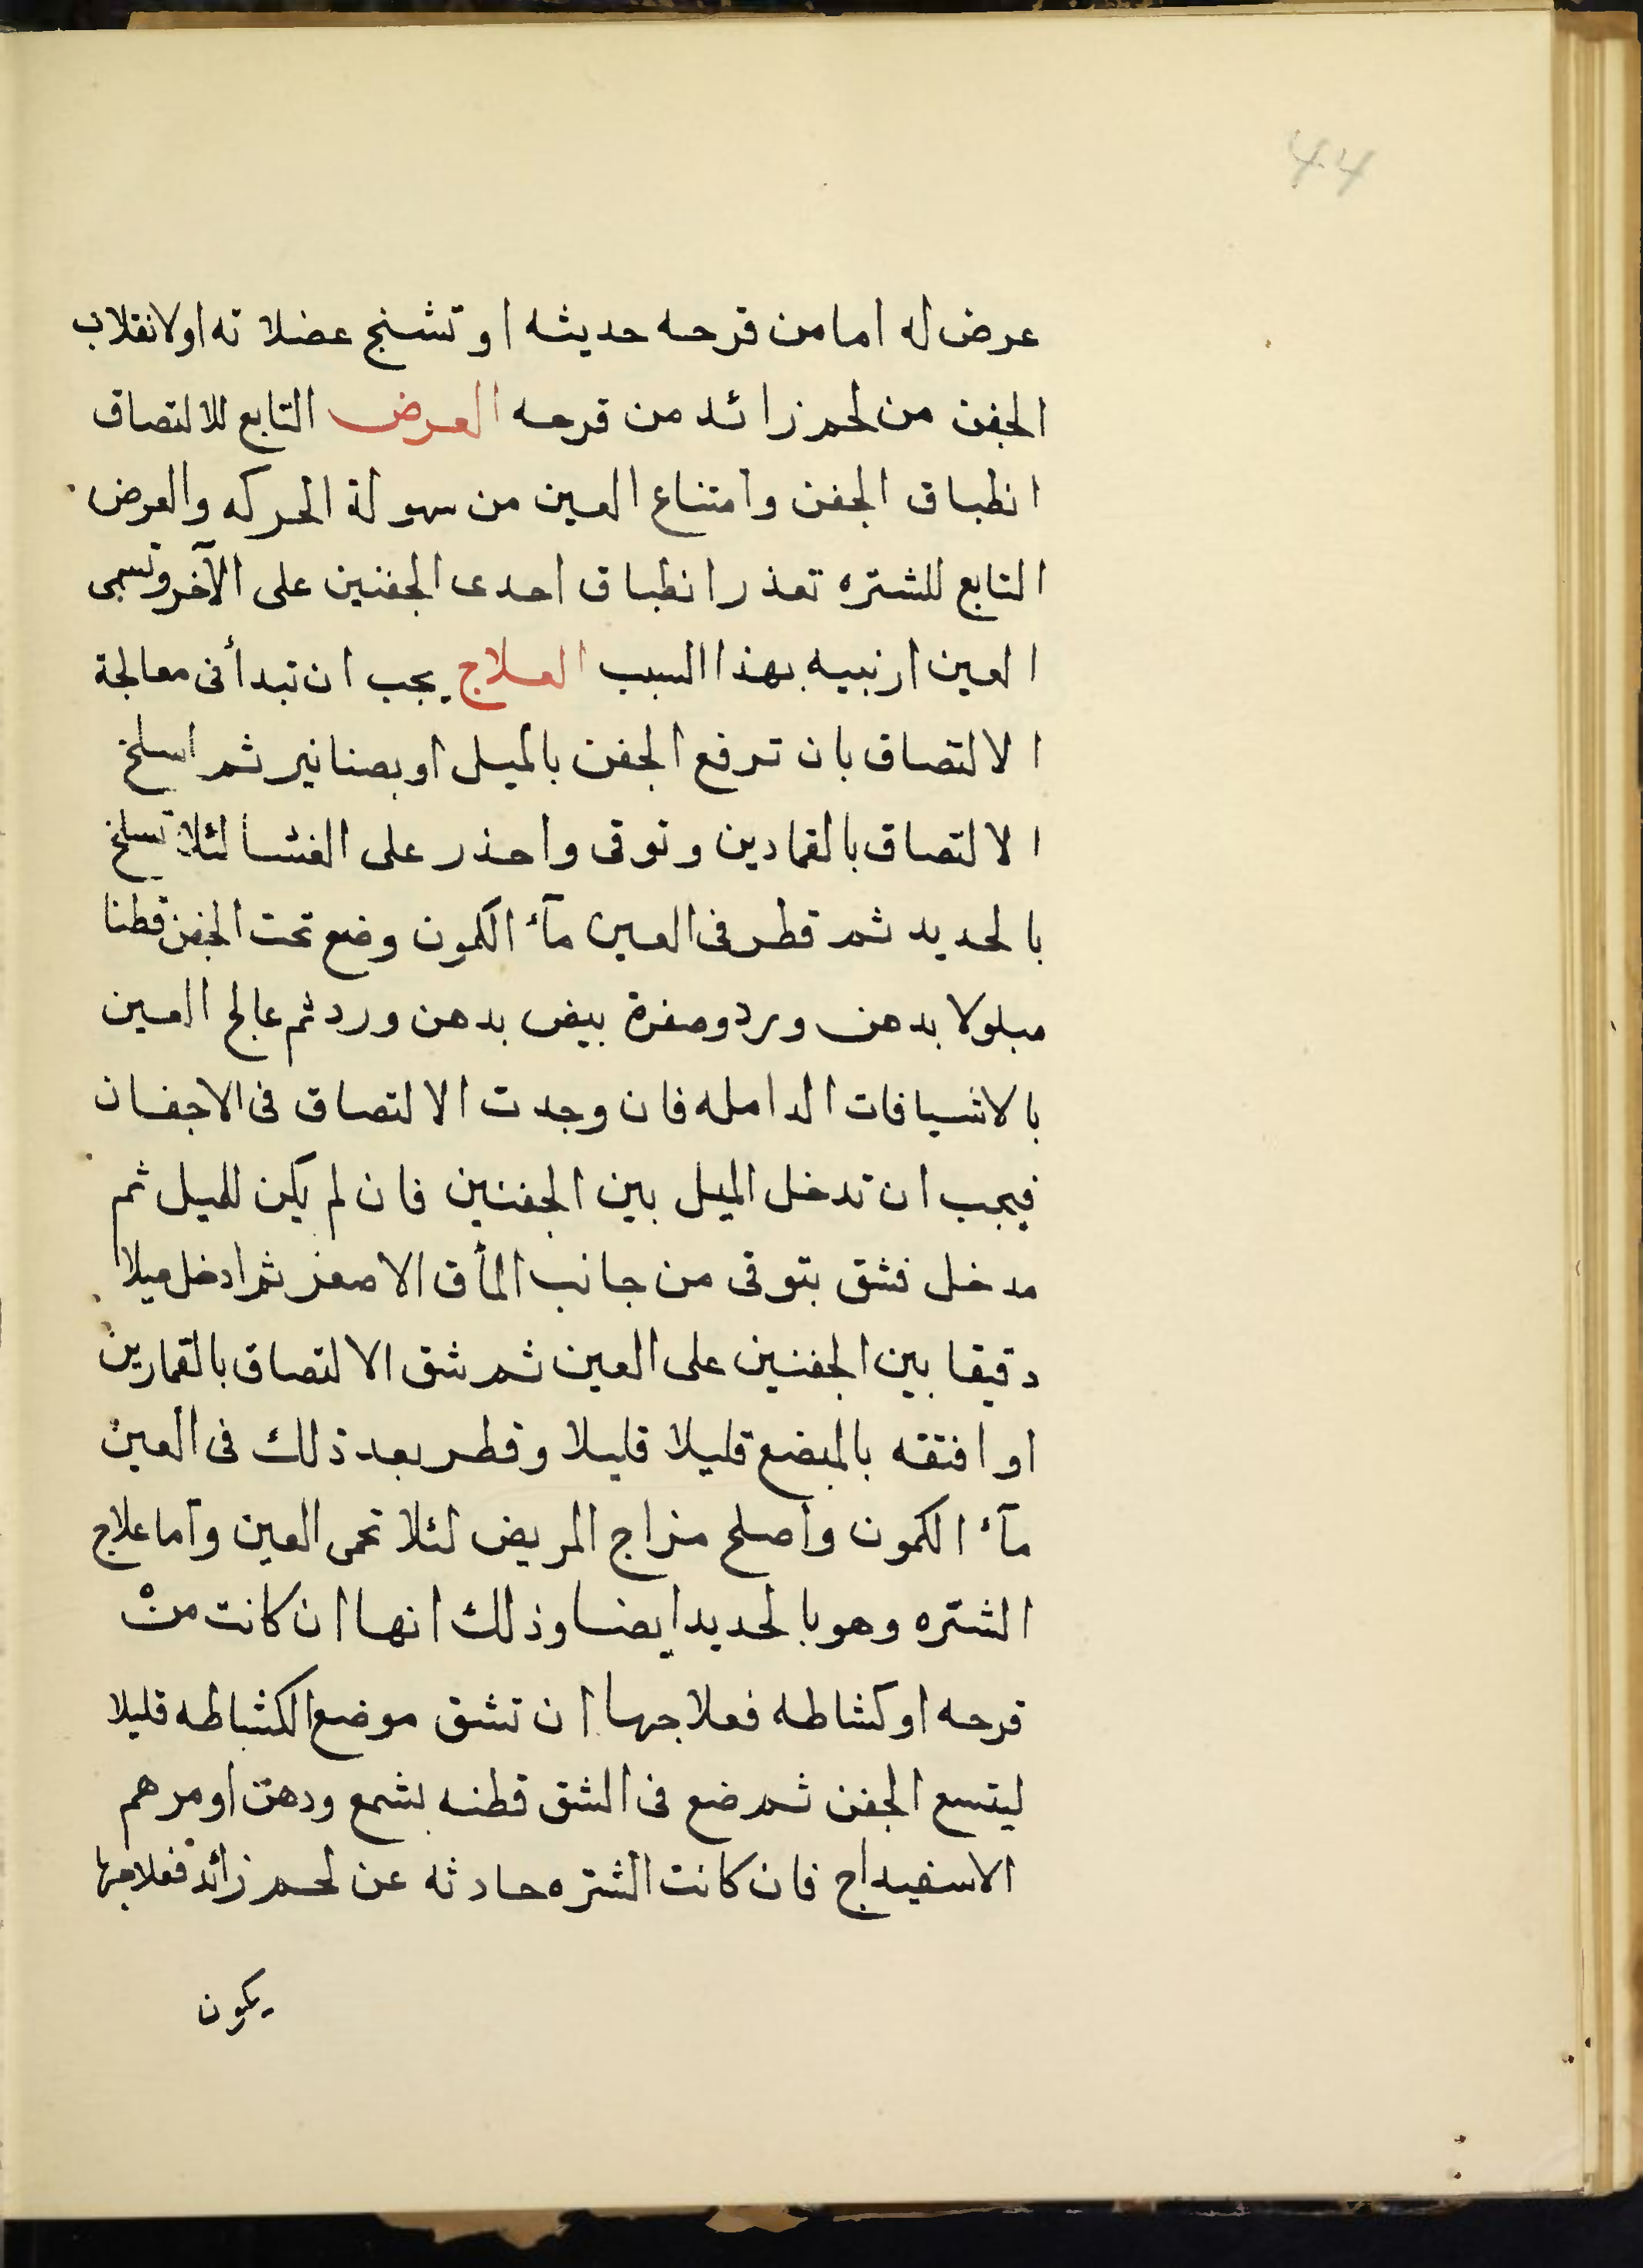 44
عرض له اما من قرحه حديثه او تشنج عضلاته او لانقلاب
الجفن من لحم زائد من قرحه العرض التابع للالتصاق
انطباق الجفن وامتناع العين من سهولة الحركه والعرض
التابع للشتره تعذر انطباق احدى الجفنين على الآخر وتسمى
العين ارنبيه بهذا السبب العلاج يجب ان تبدأ فى معالجة
الالتصاق بان ترفع الجفن بالميل او بصنانير ثم اسلخ
الالتصاق بالقمادين وتوقى واحذر على الغشا لئلا تسلخ
بالحديد ثم قطر فى العين مآء الكمون وضع تحت الجفن قطنا
مبلولا بدهن ورد وصفرة بيض بدهن ورد ثم عالج العين
بالاشيافات الدامله فان وجدت الالتصاق فى الاجفان
فيجب ان تدخل الميل بين الجفنين فان لم يكن للميل ثم
مدخل فشق بتوقى من جانب المأق الاصغر ثم ادخل ميلا
دقيقا بين الجفنين على العين ثم شق الالتصاق بالقمارين
او افتقه بالمبضع قليلا قليلا وقطر بعد ذلك فى العين
مآء الكمون واصلح مزاج المريض لئلا تحمى العين وآما علاج
الشتره وهو بالحديد ايضا وذلك انها ان كانت من
قرحه او كشاطه فعلاجها ان تشق موضع الكشاطه قليلا
ليتسع الجفن ثم ضع فى الشق قطنه بشمع ودهن او مرهم
الاسفيداج فان كانت الشتره حادثه عن لحم زائد فعلاجها
يكون